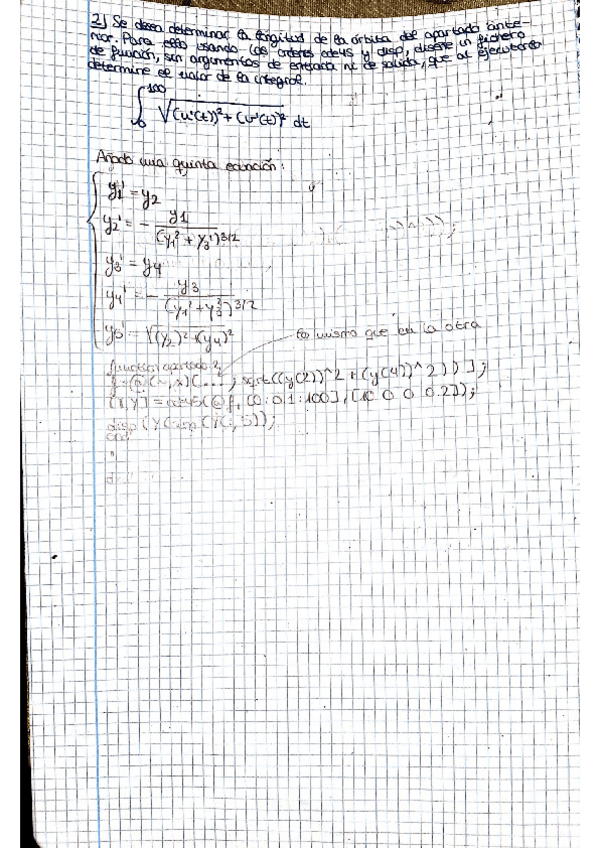 2) Se desea determinar la longitud de la órbita del apartado ante-
rior. Para ello usando las órdenes ode45 y disp, diseñe un fichero
de función, sin argumentos de entrada ni de salida, que al ejecutarlo
determine el valor de la integral.
∫₀¹⁰⁰ √((u'(t))² + (v'(t))²) dt
Añado una quinta ecuación:
y1' = y2
y2' = - y1 / (y1² + y3²)^3/2
y3' = y4
y4' = - y3 / (y1² + y3²)^3/2
y5' = √((y2)² + (y4)²)
lo mismo que en la otra
function apartado 2
f = @(~,x)(...; sqrt((y(2))^2 + (y(4))^2))];
[X,Y] = ode45(@f, [0:0.1:100], [10 0 0 0.2]);
disp(Y(
end